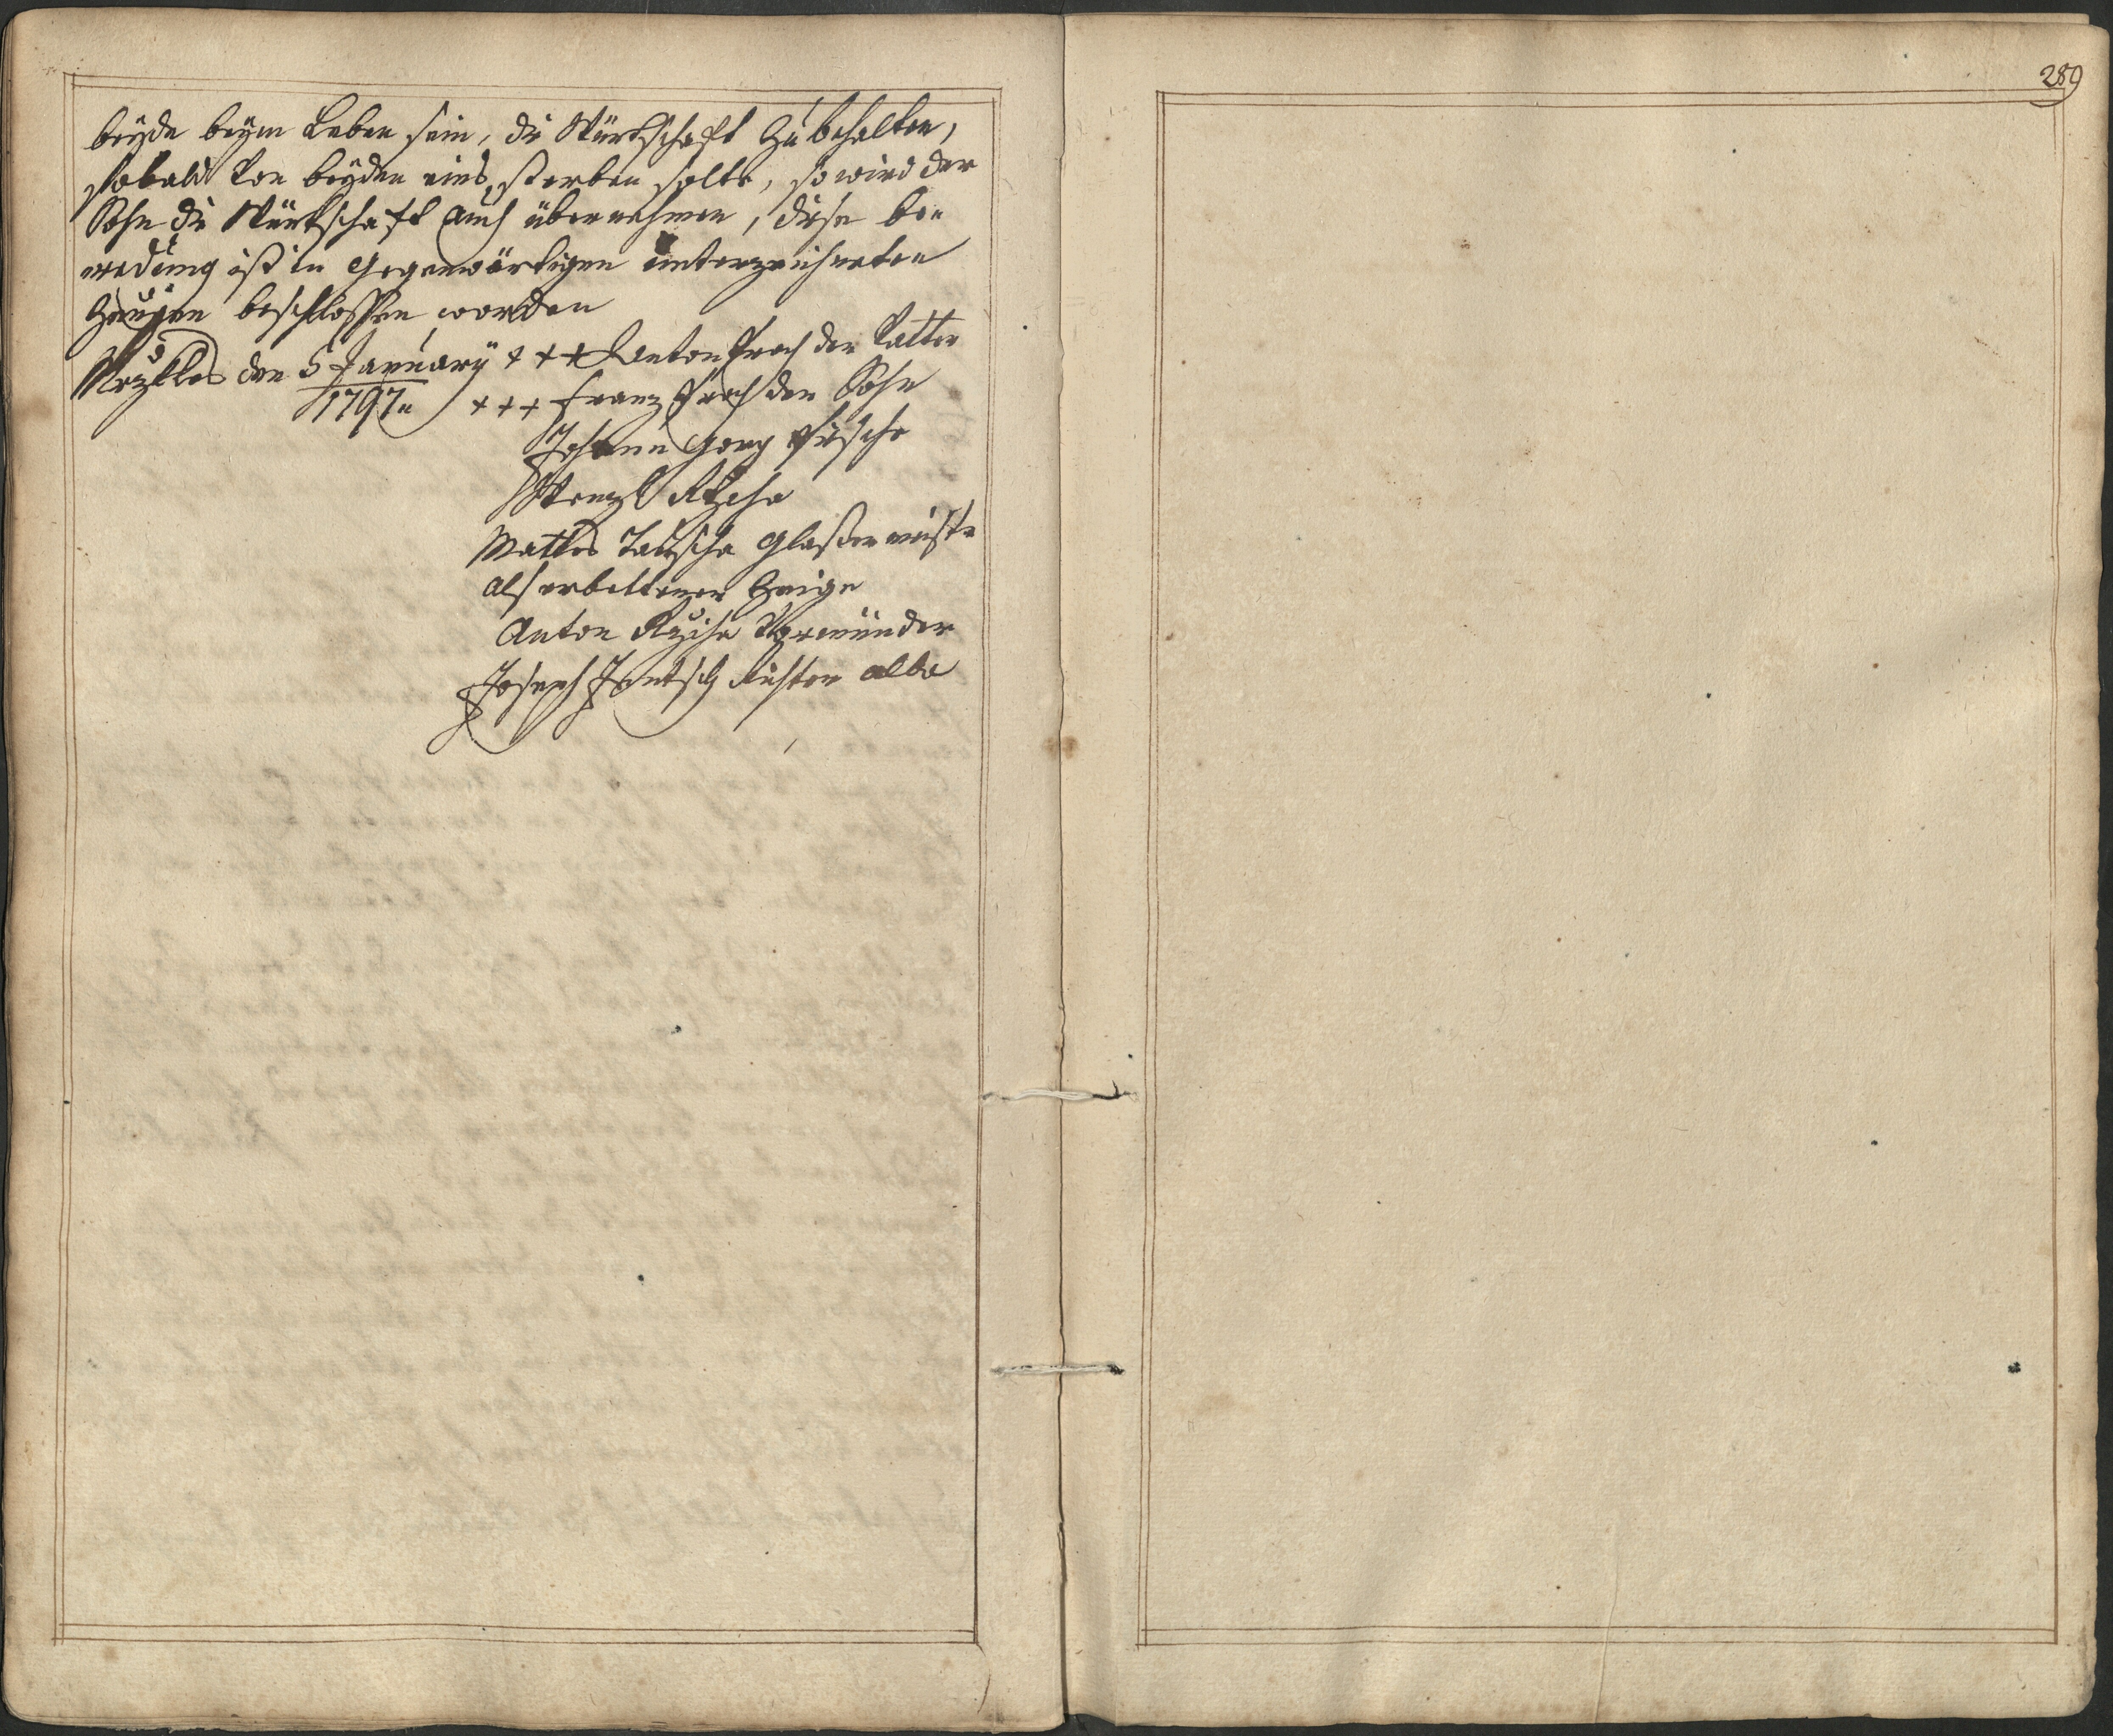 289
beyde beym Leben sein, die Würtschaft zu behalten,
sobald von beyden eins sterben solte, so wird der
Sohn die Würtschaft auch übernehmen, diese be„
redung ist in gegenwärtigen unterzeichneten
Zeugen beschlossen worden
den 5 January +++ Anton der Vatter
1797„ +++ Franz der Sohn
Johann Georg
Wenzl
Mattes Glasermeister
als erbettener Zeige
Anton Vormünder
Joseph Richter alda